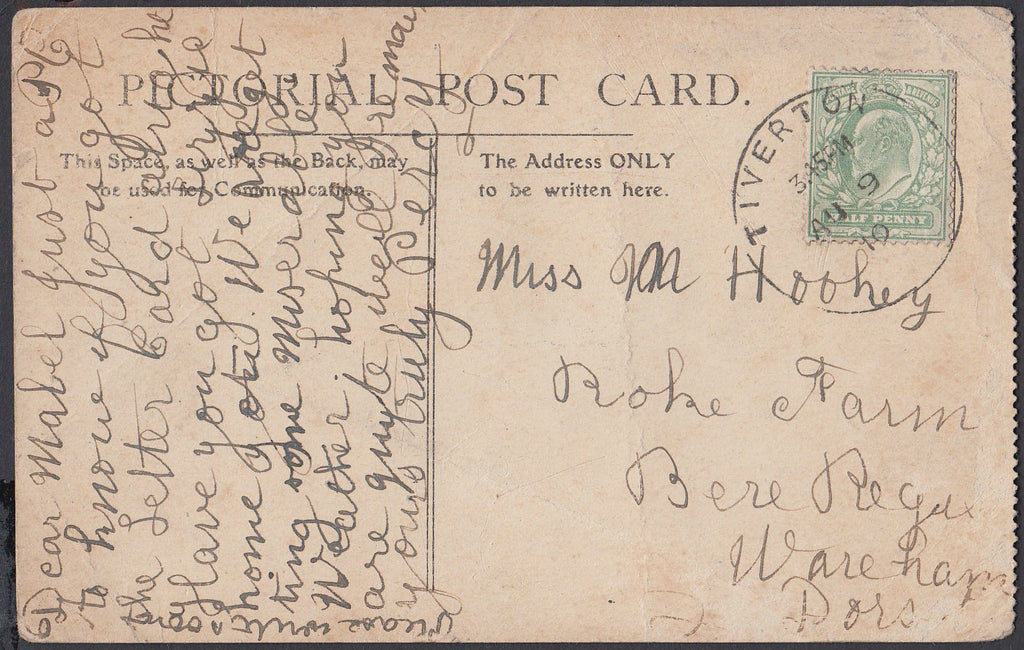 PICTORIAL POST CARD.
This Space, as well as the Back, may
be used for Communication.
The Address ONLY
to be written here.
TIVERTON
3.45PM
AU 9
10
POSTAGE & REVENUE
HALF PENNY
Miss M Hookey
Roke Farm
Bere Regu
Wareham
Dors
Dear Mabel Just a Pc
to know if you got
the Letter Card alright
Have you got
home yet. We are get
ting some miserable
Weather. hoping you
are quite well remain
yours truly Percy
Please write soon